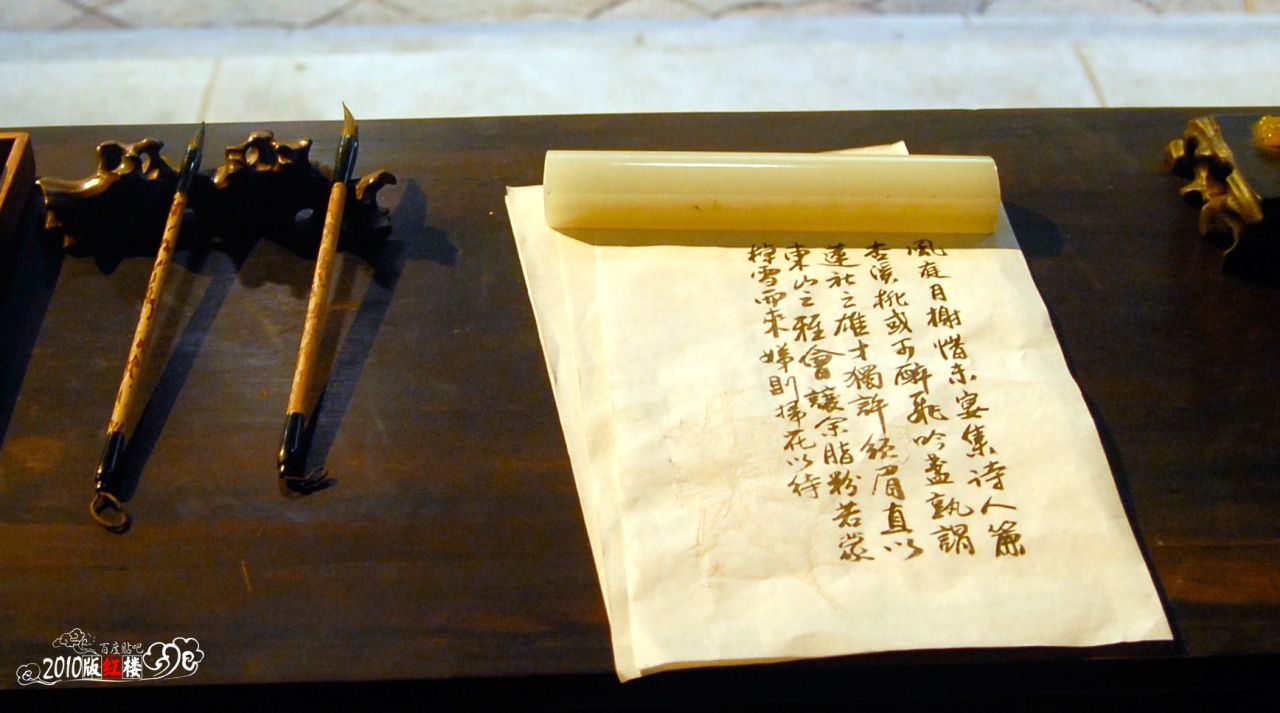 風庭月榭惜未宴集诗人簾
杏溪桃或可醉飛吟盞孰謂
蓮社之雄才獨許须眉直以
東山之雅會讓余脂粉若蒙
棹雪而来娣則掃花以待
百度贴吧
2010版红楼